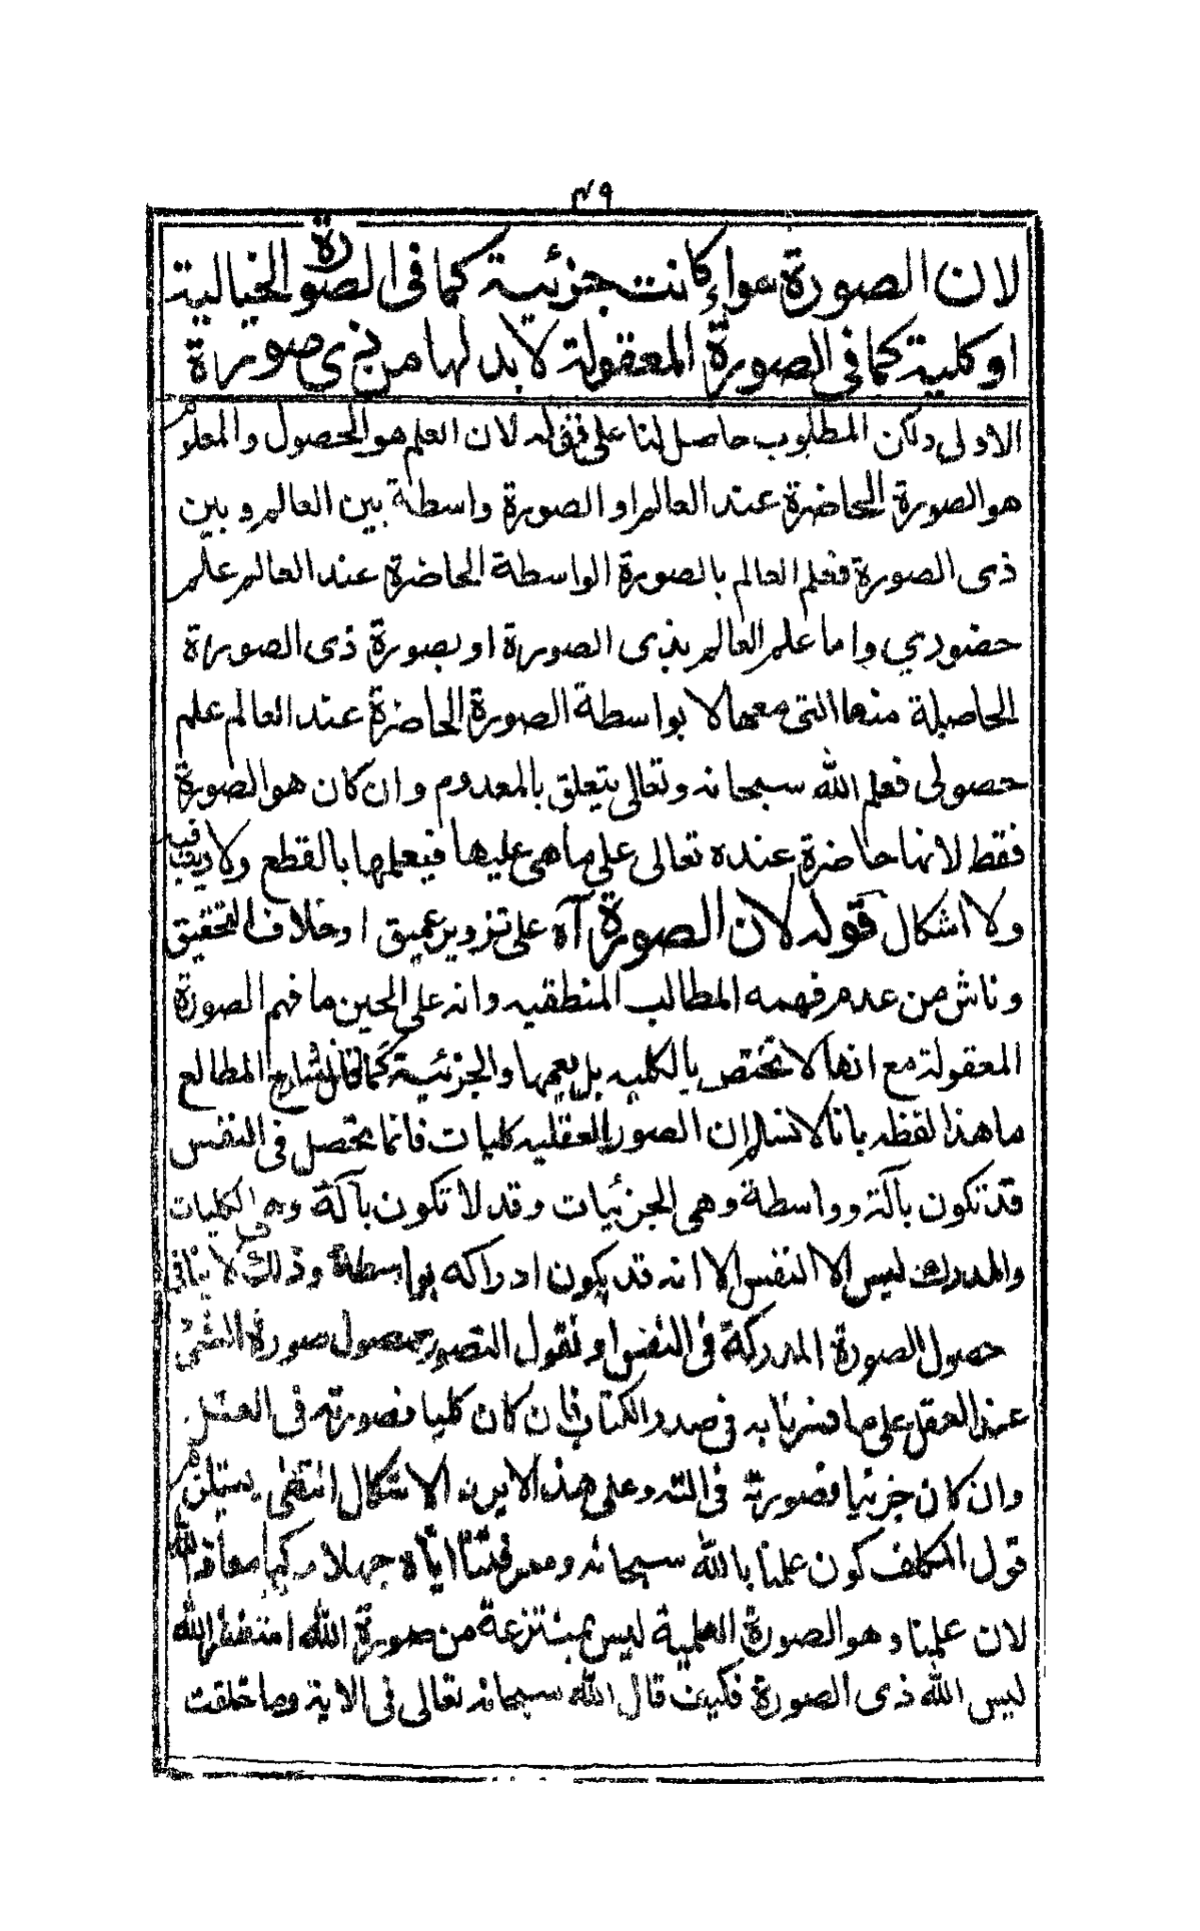 ٤٩
لان الصورة سواء كانت جزئية كما فى الصورة الخيالية
او كلية كما فى الصورة المعقولة لابد لها من ذى صورة
الاولى ولكن المطلوب حاصل لنا على لان العلم هو الحصول والمعلوم
هو الصورة الحاضرة عند العالم او الصورة واسطة بين العالم وبين
ذى الصورة فعلم العالم بالصورة الواسطة الحاضرة عند العالم علم
حضوري واما علم العالم بذى الصورة او بصورة ذى الصورة
الحاصلة منها التى معها لا بواسطة الصورة الحاضرة عند العالم علم
حصولى فعلم الله سبحانه وتعالى يتعلق بالمعدوم وان كان هو الصورة
فقط لانها حاضرة عنده تعالى على ماهى عليها فيعلمها بالقطع ولا ريب فيه
ولا اشكال قوله لان الصورة آه على تزوير عميق او خلاف التحقيق
وناش من عدم فهمه المطالب المنطقيه وانه على الحين ما فهم الصورة
المعقولة مع انها لا تختص بالكليه بل يعمها والجزئية كما قال شارح المطالع
ما هذا لفظه بانا لا نسلم ان الصور العقليه كليات فانما يحصل فى النفس
قد تكون بآلة وواسطة وهى الجزئيات وقد لا تكون بآلة وهى الكليات
والمدرك ليس الا النفس الا انه قد يكون ادراكه بواسطة وذلك لا ينافى
حصول الصورة المدركة فى النفس او نقول التصور حصول صورة الشئ
عند العقل على ما فسرنا به فى صدر الكتاب فان كان كليا فصورته فى العقل
وان كان جزئيا فصورته فى وعلى هذا الاشكال انتهى يستلزم
قول المكلف كون علمنا بالله سبحانه ومعرفتنا اياه جهلا مركبا معاذ الله
لان علمنا وهو الصورة العلمية ليس بمنتزعة من صورة الله استغفر الله
ليس الله ذى الصورة فكيف قال الله سبحانه تعالى فى الاية وما خلقت